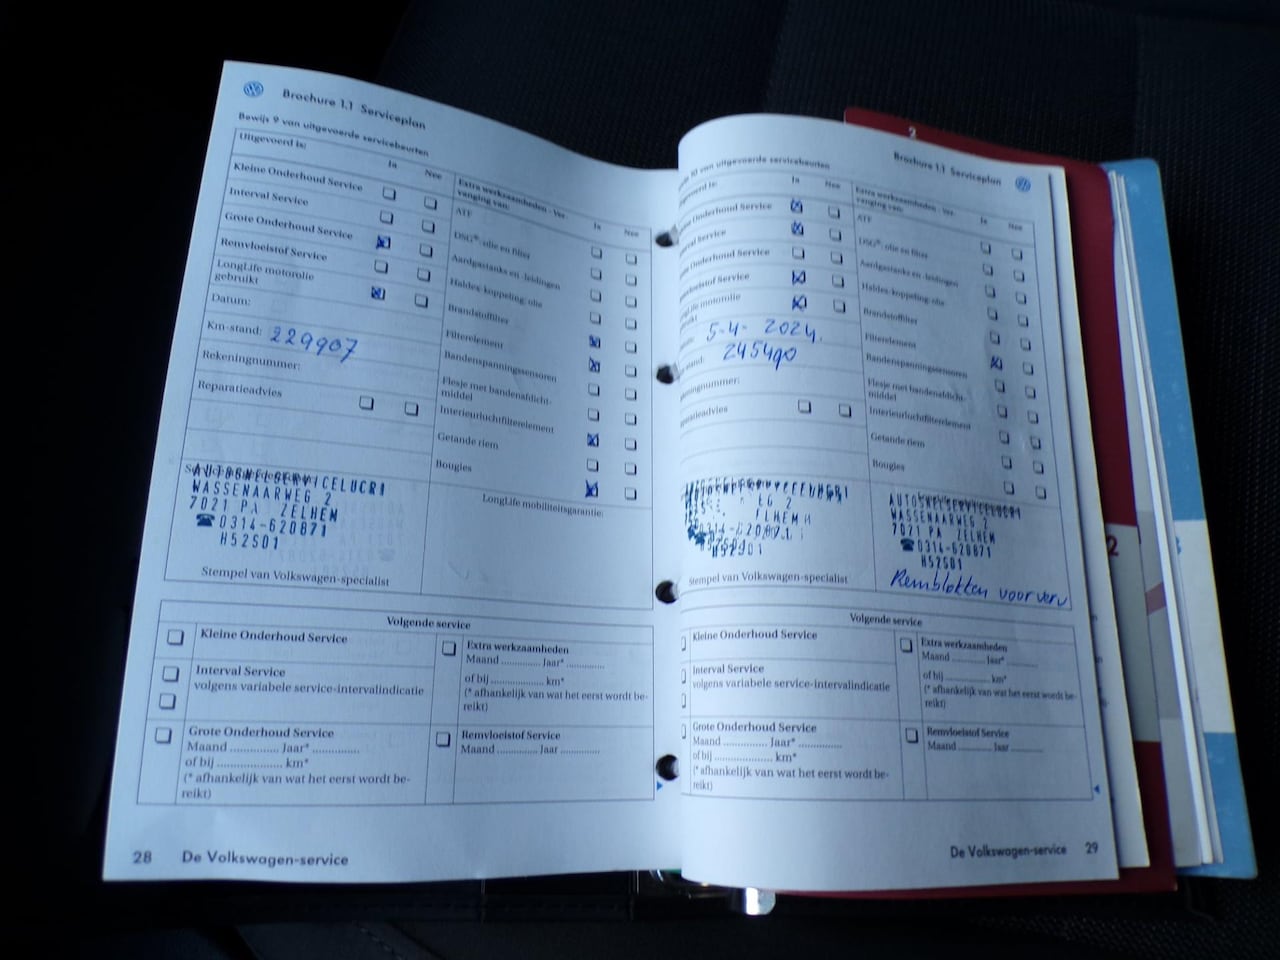 Brochure 1.1 Serviceplan
Bewijs 9 van uitgevoerde servicebeurten
Uitgevoerd is:
Ja
Nee
Kleine Onderhoud Service
Interval Service
Grote Onderhoud Service
Remvloeistof Service
LongLife motorolie
gebruikt
Datum:
Km-stand: 229907
Rekeningnummer:
Reparatieadvies
AUTOSNELSERVICELUCRI
WASSENAARWEG 2
7021 PA ZELHEM
☎ 0314-620871
H52501
Stempel van Volkswagen-specialist
Extra werkzaamheden - Ver-
vanging van:
Ja
Nee
ATF
DSG®: olie en filter
Aardgastanks en -leidingen
Haldex-koppeling: olie
Brandstoffilter
Filterelement
Bandenspanningssensoren
Flesje met bandenafdicht-
middel
Interieurluchtfilterelement
Getande riem
Bougies
LongLife mobiliteitsgarantie:
Volgende service
Kleine Onderhoud Service
Interval Service
volgens variabele service-intervalindicatie
Grote Onderhoud Service
Maand .............. Jaar* .............
of bij .................... km*
(* afhankelijk van wat het eerst wordt be-
reikt)
Extra werkzaamheden
Maand ............ Jaar* ............
of bij ................. km*
(* afhankelijk van wat het eerst wordt be-
reikt)
Remvloeistof Service
Maand ............ Jaar ............
28 De Volkswagen-service
2
Brochure 1.1 Serviceplan
10 van uitgevoerde servicebeurten
Ja
Nee
Onderhoud Service
Service
Onderhoud Service
Service
motorolie
5-4-2024.
245490
Reparatieadvies
2
0314-620871
Stempel van Volkswagen-specialist
Extra werkzaamheden - Ver-
vanging van:
Ja
Nee
ATF
DSG®: olie en filter
Aardgastanks en -leidingen
Haldex-koppeling: olie
Brandstoffilter
Filterelement
Bandenspanningssensoren
Flesje met bandenafdicht-
middel
Interieurluchtfilterelement
Getande riem
Bougies
AUTOSNELSERVICELUCRI
WASSENAARWEG 2
7021 PA ZELHEM
☎ 0314-620871
H52501
Remblokken voor verv
Volgende service
Kleine Onderhoud Service
Interval Service
volgens variabele service-intervalindicatie
Grote Onderhoud Service
Maand .............. Jaar* .............
of bij .................... km*
(* afhankelijk van wat het eerst wordt be-
reikt)
Extra werkzaamheden
Maand ............ Jaar* ............
of bij ................. km*
(* afhankelijk van wat het eerst wordt be-
reikt)
Remvloeistof Service
Maand ............ Jaar ............
De Volkswagen-service 29
2